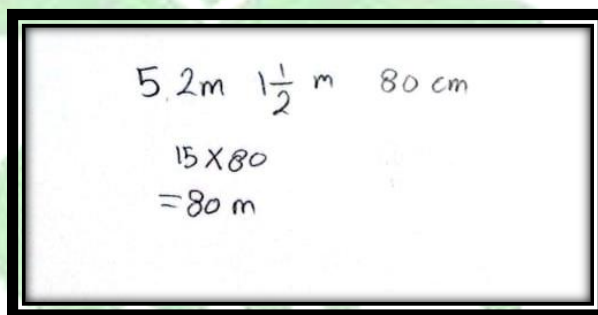 5.2m 1 1/2 m 80 cm
15 X 80
= 80 m